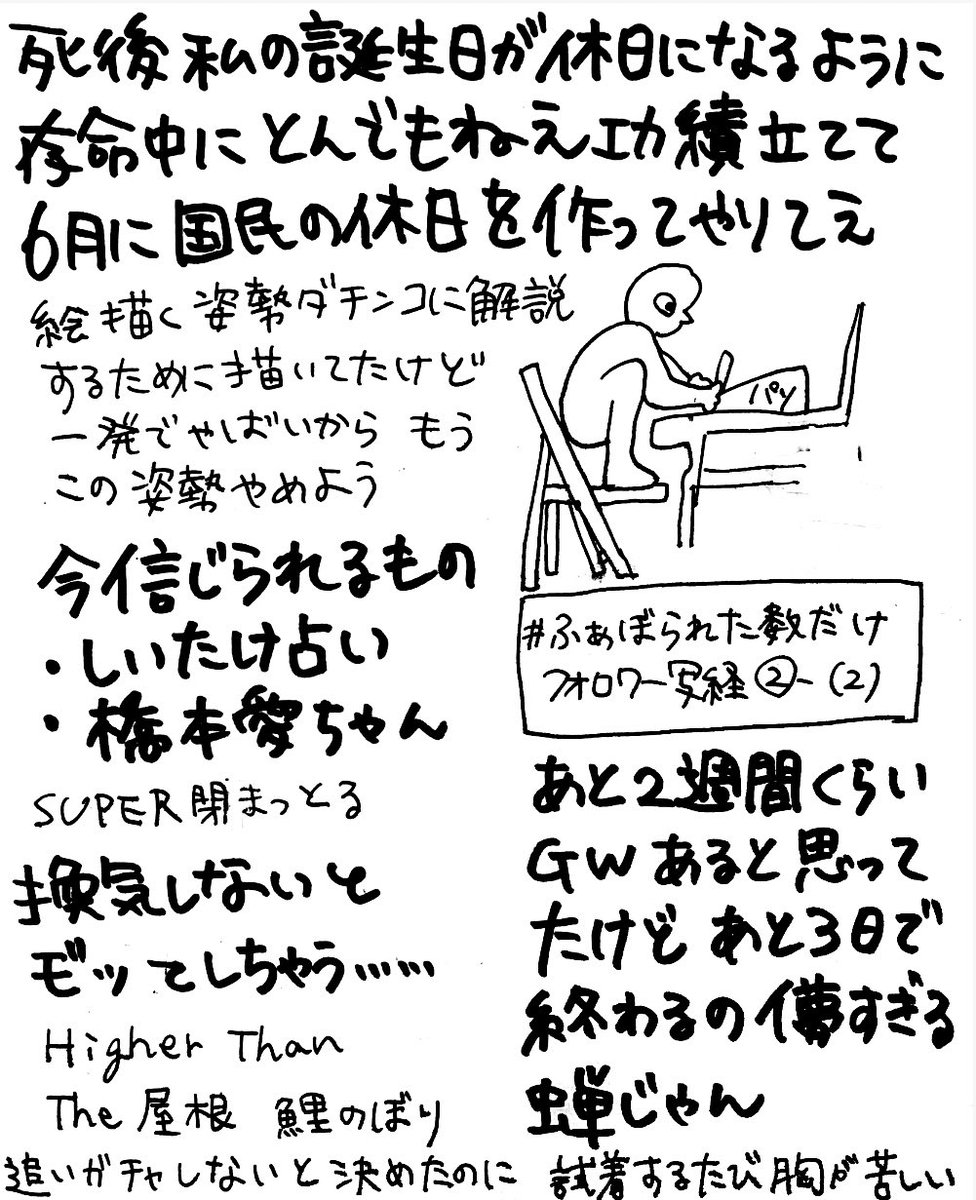 死後私の誕生日が休日になるように
存命中にとんでもねえ功績立てて
6月に国民の休日を作ってやりてえ
絵描く姿勢ダチンコに解説
するために描いてたけど
一発でやばいから もう
この姿勢やめよう
パソ
今信じられるもの
・しいたけ占い
・橋本愛ちゃん
SUPER閉まっとる
換気しないと
モッてしちゃう……
Higher Than
The 屋根 鯉のぼり
#ふぁぼられた数だけ
フォロワー写経②-(2)
あと2週間くらい
GWあると思って
たけど あと3日で
終わるの儚すぎる
蝉じゃん
追いガチャしないと決めたのに
試着するたび胸が苦しい